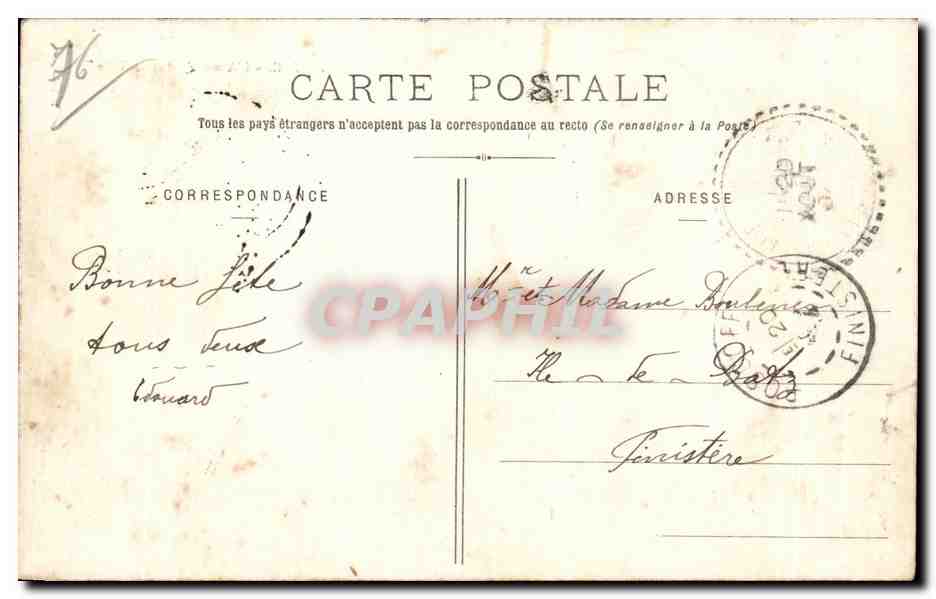 76
CARTE POSTALE
Tous les pays étrangers n'acceptent pas la correspondance au recto (Se renseigner à la Poste)
CORRESPONDANCE
ADRESSE
Bonne fête
à tous deux
Edouard
Mr et Madame
Ile de Batz
Finistère
20
AOUT
ROSCOFF
20
FINISTERE
CPAPHIL